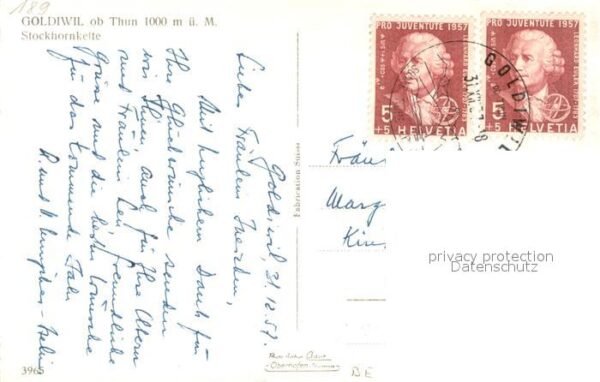 189
GOLDIWIL ob Thun 1000 m ü. M.
Stockhornkette
Goldiwil, 31.12.57.
Liebes Fräulein
Mit herzlichem Dank für
Ihre Glückwünsche senden
wir Ihnen, auch für Ihre Eltern
und Fräulein freundliche
Grüsse und die besten Wünsche
für das kommende Jahr
3965
Fabrication Suisse
PRO JUVENTUTE 1957
LEONHARD EULER 1707-1783
5
+5 HELVETIA
PRO JUVENTUTE 1957
LEONHARD EULER 1707-1783
5
+5 HELVETIA
GOLDIWIL
Fräu
Marg
Kir
privacy protection
Datenschutz
BE